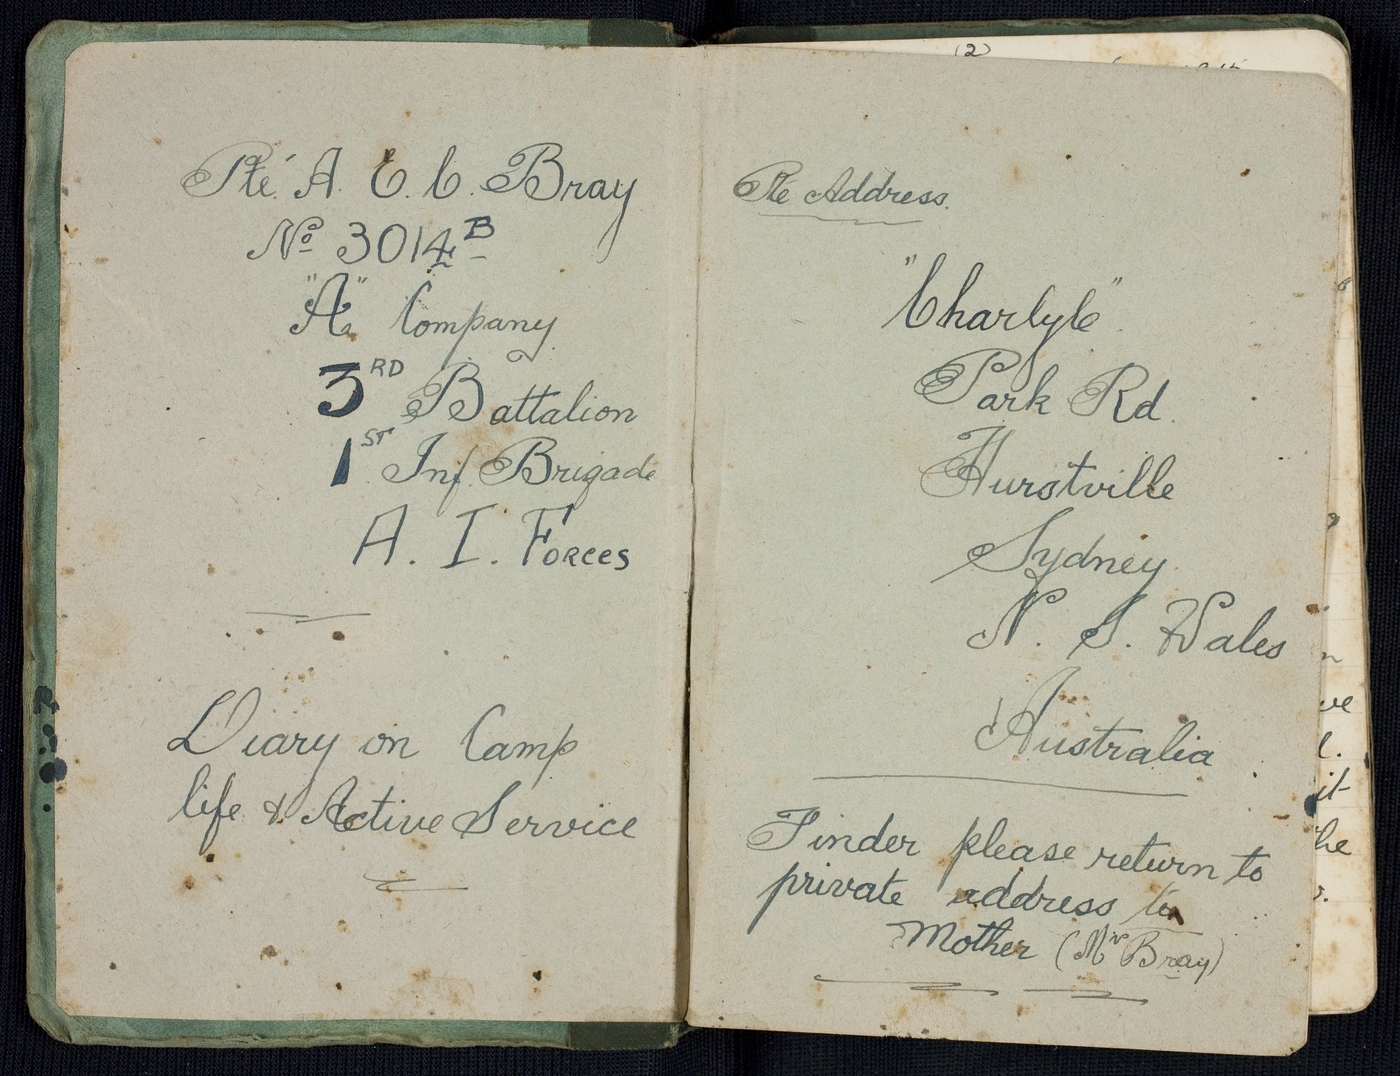 Pte. A. E. C. Bray
No 3014 B
"A" Company
3RD Battalion
1ST Inf Brigade
A. I. Forces
Diary on Camp
life & Active Service
Pte Address.
"Charlyle"
Park Rd.
Hurstville
Sydney
N. S. Wales
Australia
Finder please return to
private address to
Mother (Mrs Bray)
(2)
ve
l.
it
he